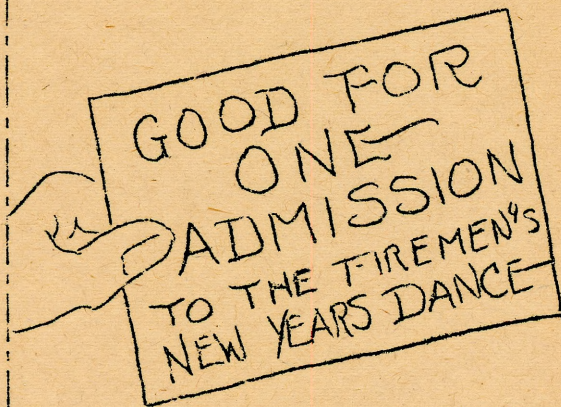 GOOD FOR
ONE
ADMISSION
TO THE FIREMEN'S
NEW YEARS DANCE